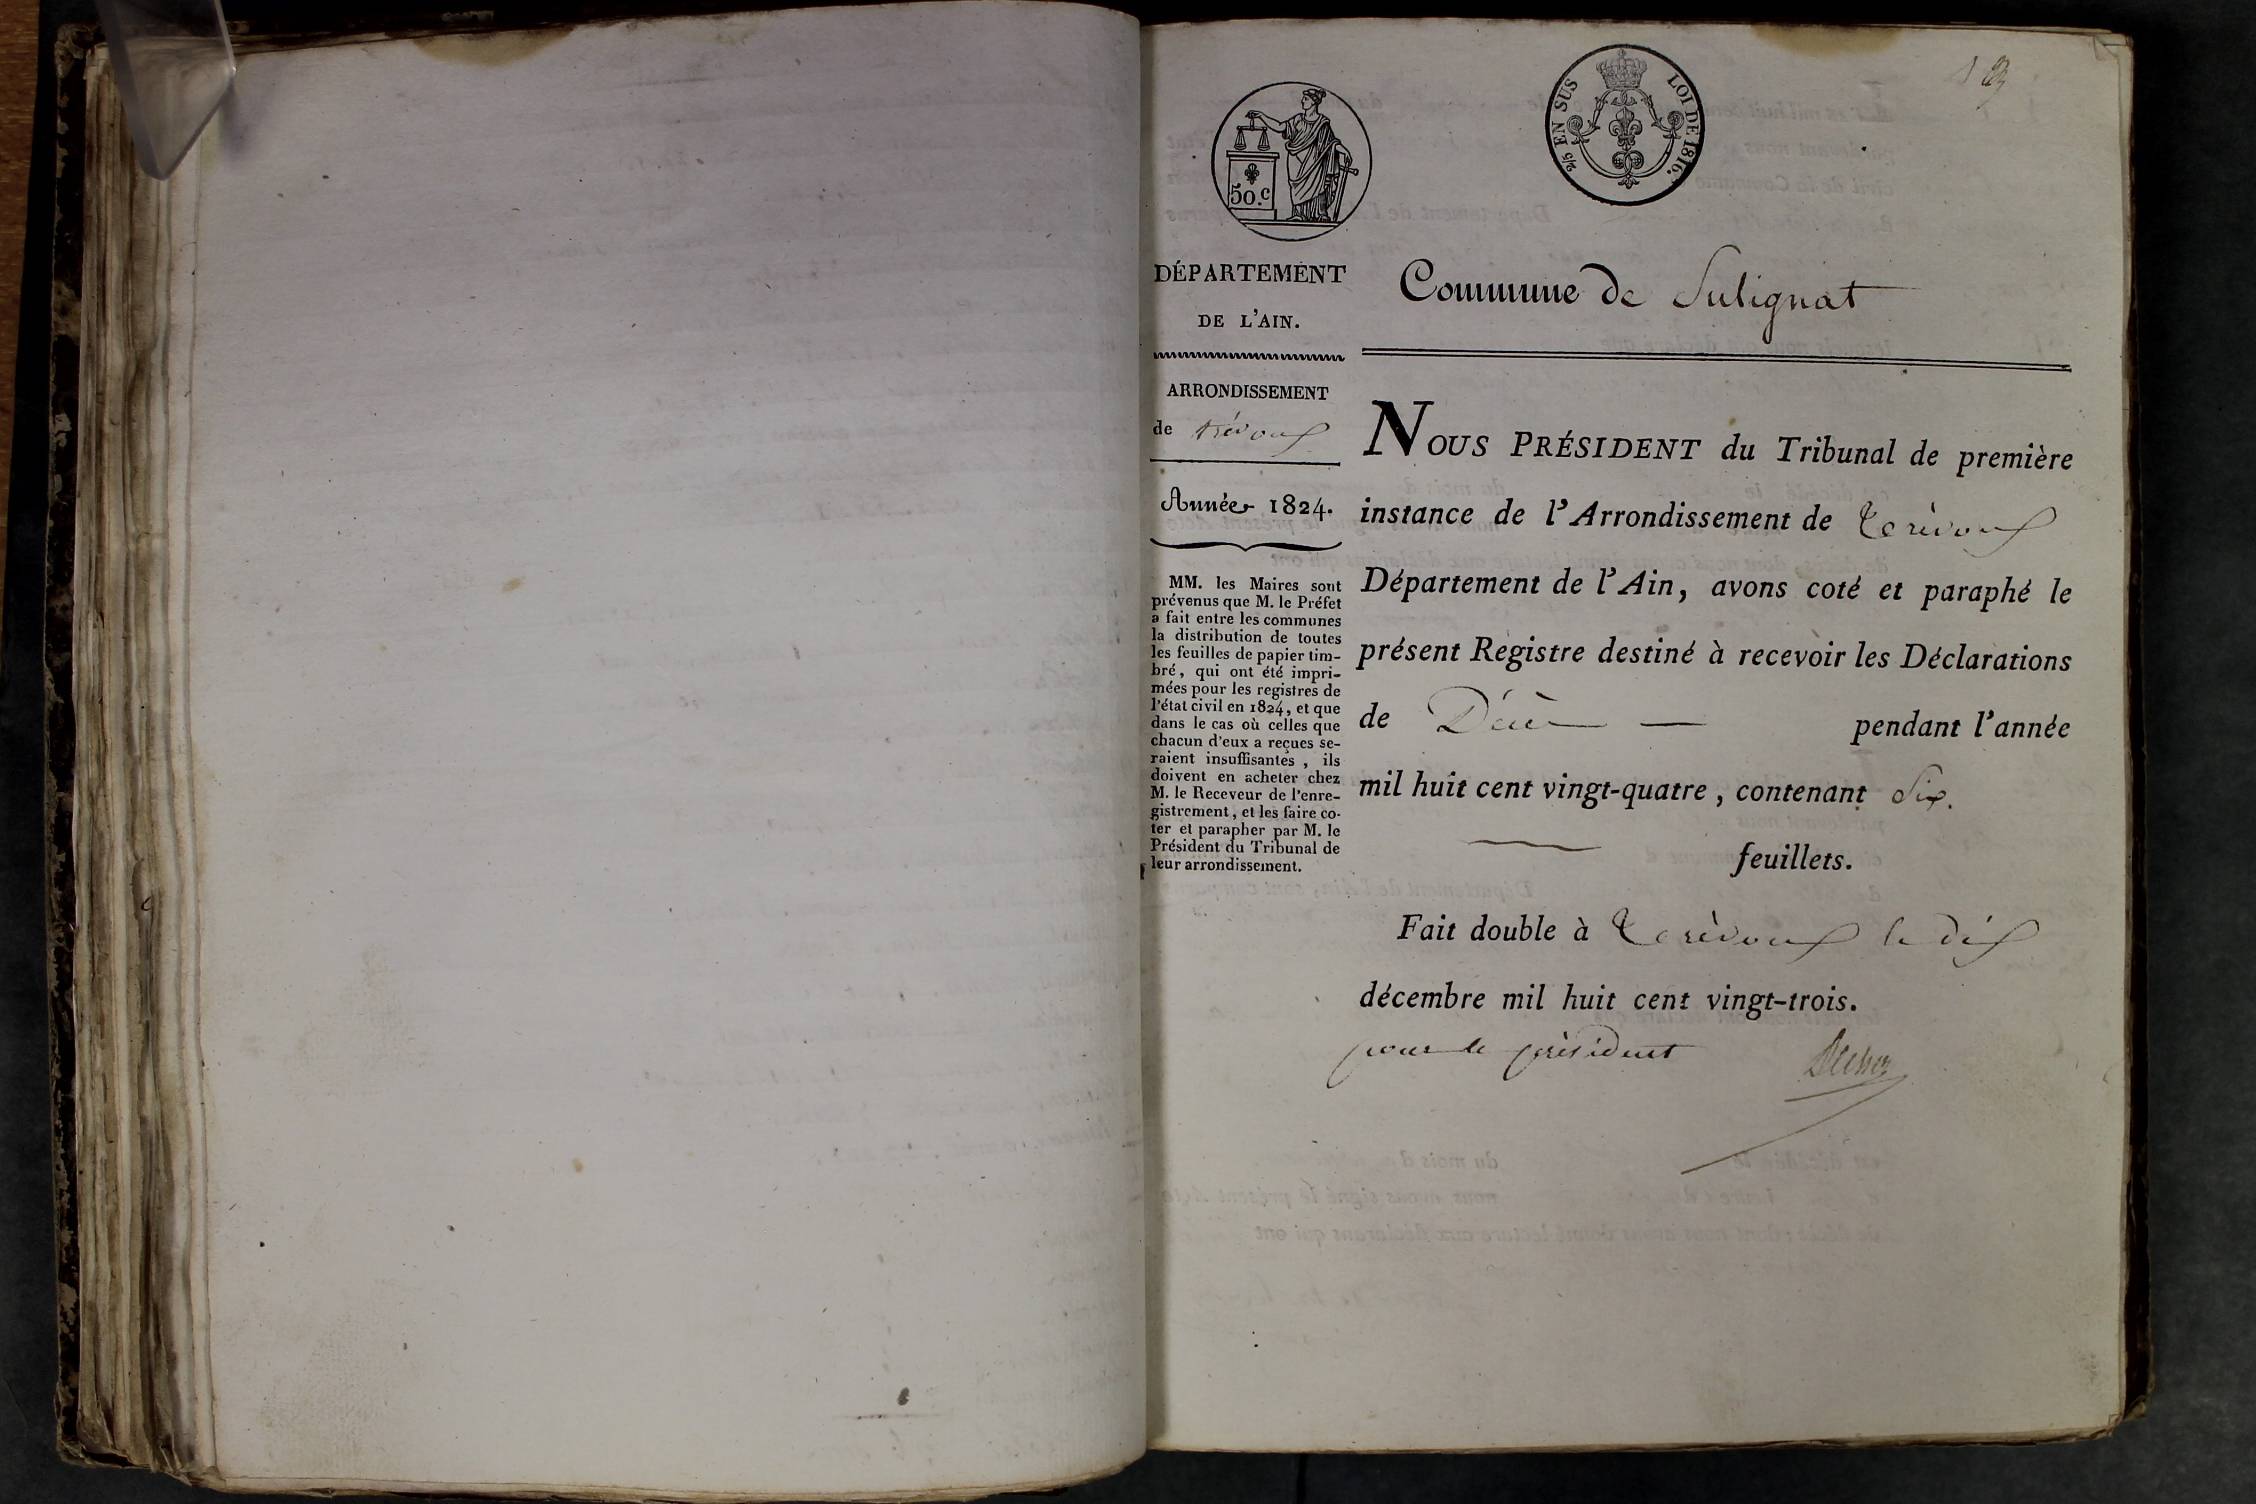 50.c
2/5 EN SUS LOI DE 1816.
1
DÉPARTEMENT
DE L'AIN.
ARRONDISSEMENT
de trévoux
Année 1824.
MM. les Maires sont
prévenus que M. le Préfet
a fait entre les communes
la distribution de toutes
les feuilles de papier tim-
bré, qui ont été impri-
mées pour les registres de
l'état civil en 1824, et que
dans le cas où celles que
chacun d'eux a reçues se-
raient insuffisantes, ils
doivent en acheter chez
M. le Receveur de l'enre-
gistrement, et les faire co-
ter et parapher par M. le
Président du Tribunal de
leur arrondissement.
Commune de Sulignat
NOUS PRÉSIDENT du Tribunal de première
instance de l'Arrondissement de Trévoux
Département de l'Ain, avons coté et paraphé le
présent Registre destiné à recevoir les Déclarations
de Décès — pendant l'année
mil huit cent vingt-quatre, contenant Six.
feuillets.
Fait double à Trévoux le dix
décembre mil huit cent vingt-trois.
pour le président